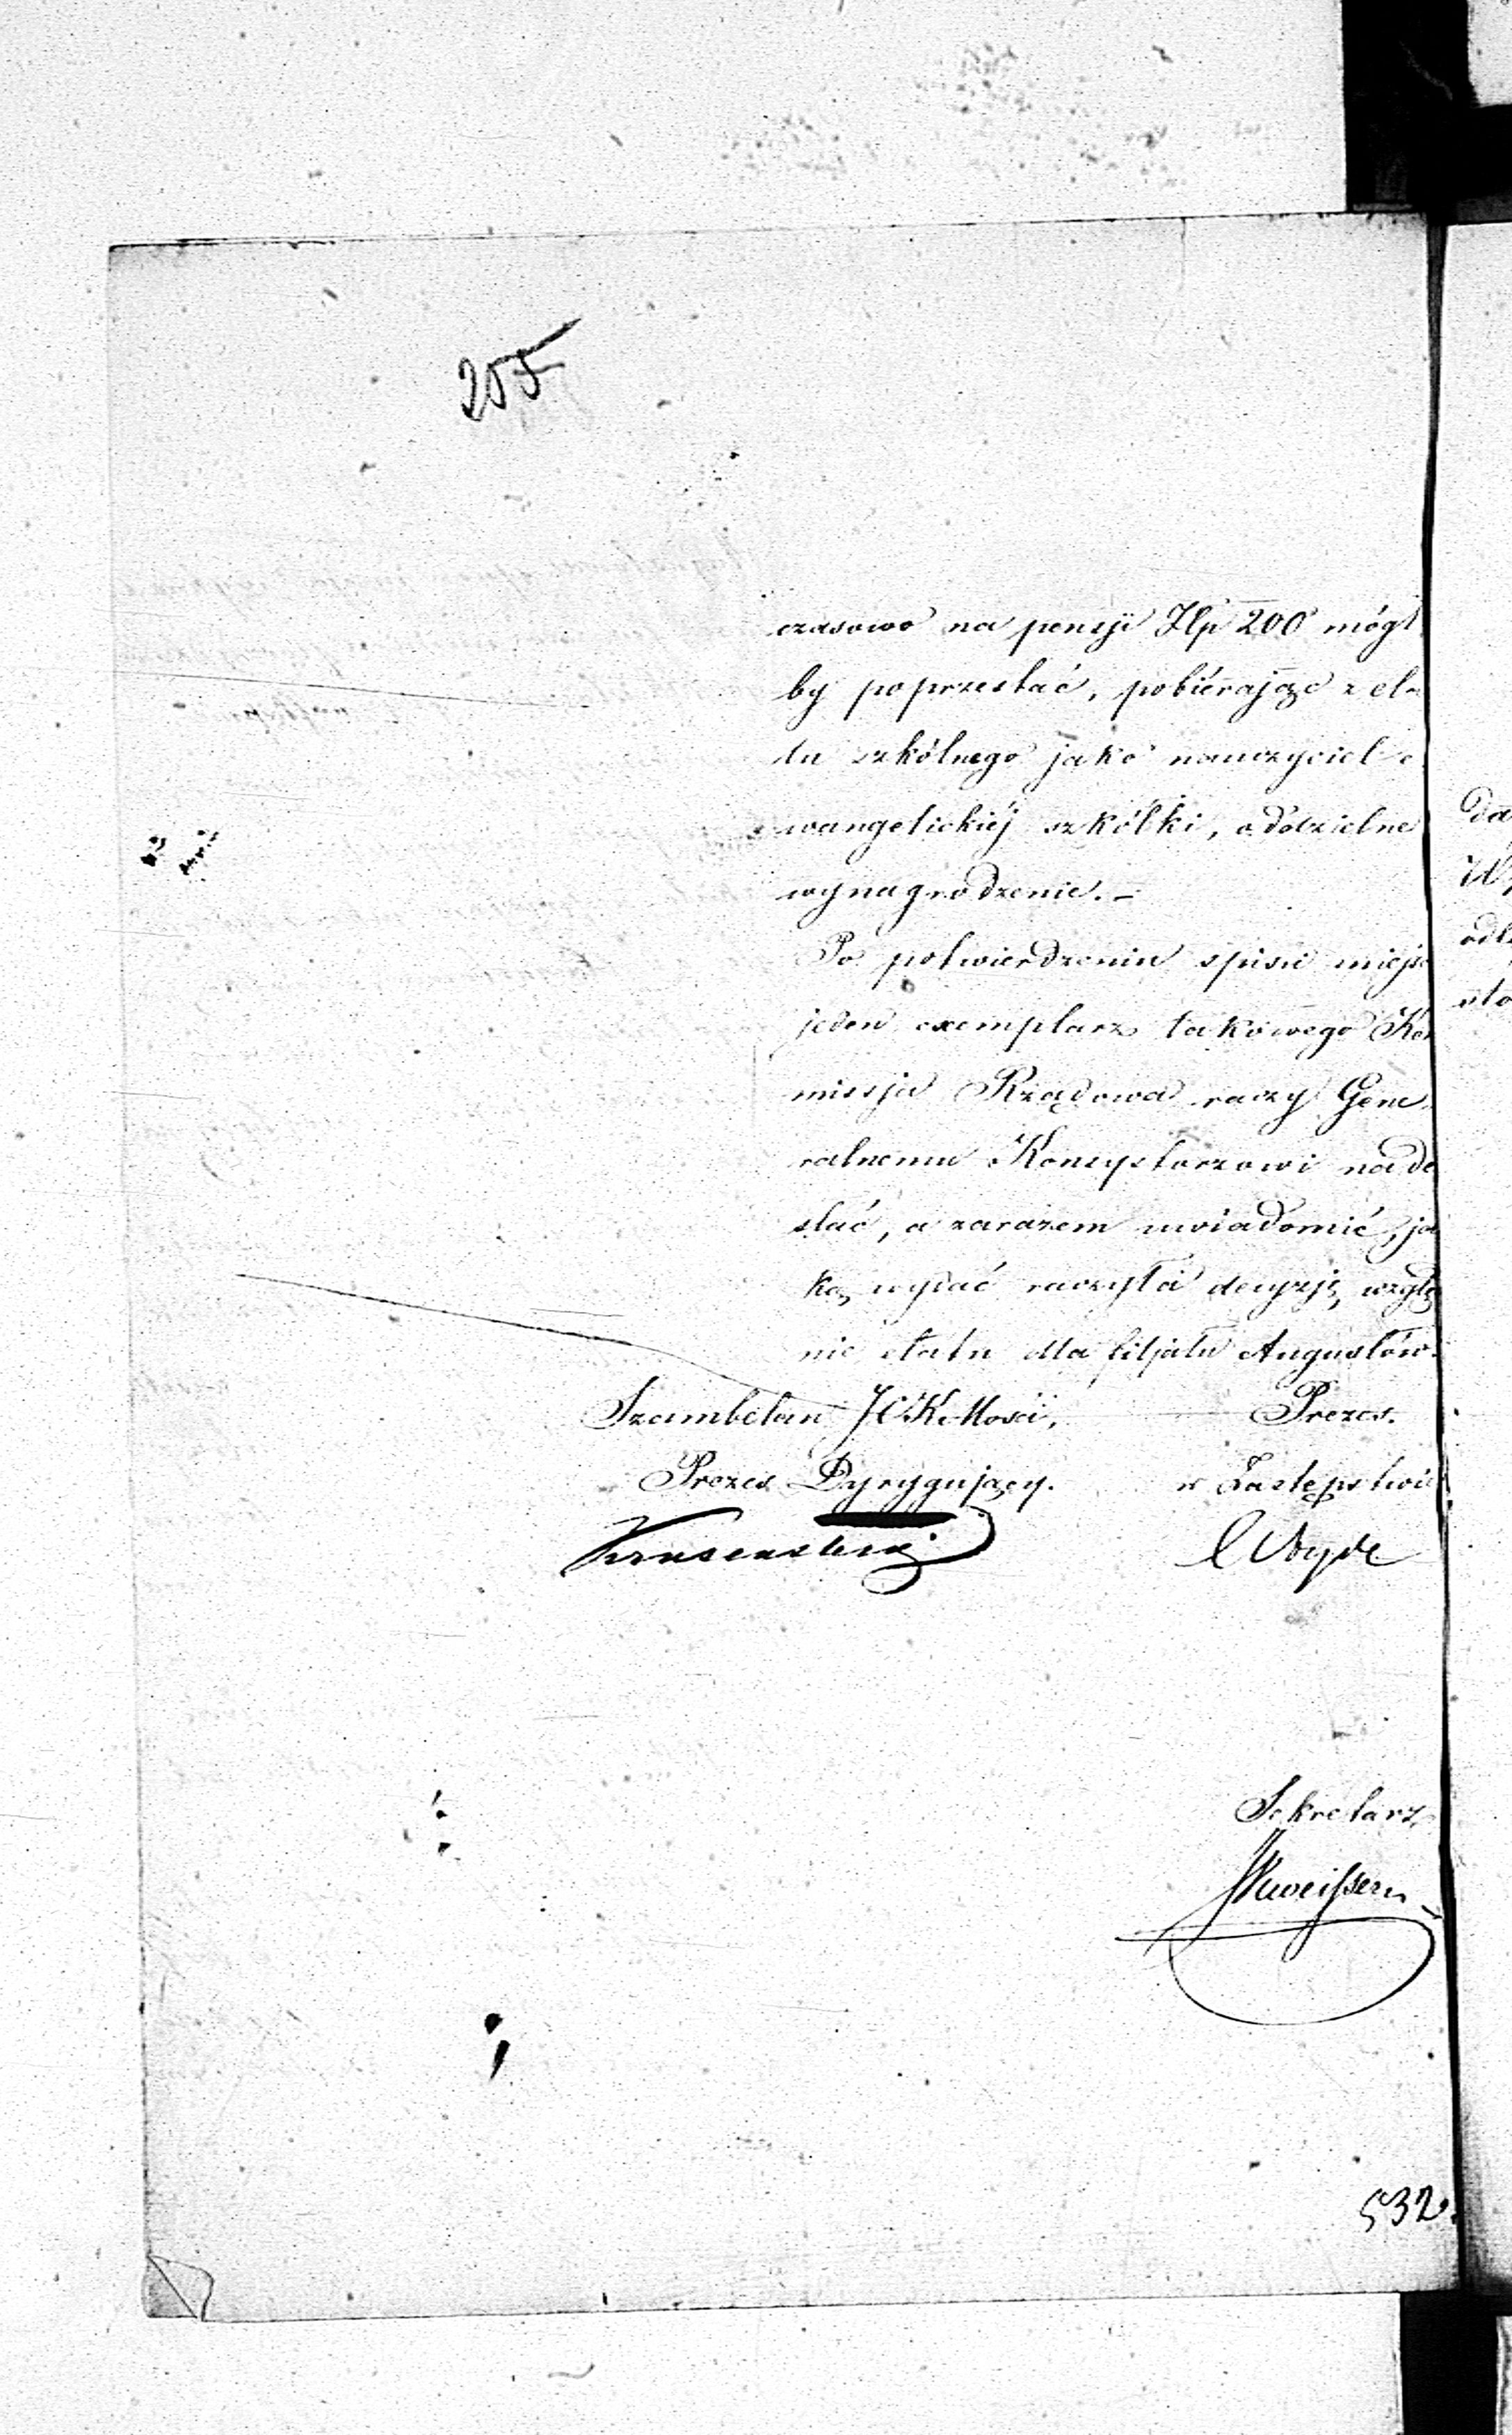 205
czasowo na pensji Złp 200 mógł
by poprzestać, pobiérając z eta
tu szkólnego jako nauczyciel e
wangelickiéj szkółki, oddzielne
wynagrodzenie. –
Po potwierdzeniu spisu miejsc
jeden exemplarz takowego Kom
missja Rządowa raczy Gene
ralnemu Konsystorzowi nade
słać, a zarazem uwiadomić, ja
ką wydać raczyła decyzję, wzglę
nie etatu dla filjału Augustów.
Szambelan JCK Mości, Prezes.
Prezes Dyrygujący. w Zastępstwie
Sekretarz
532.